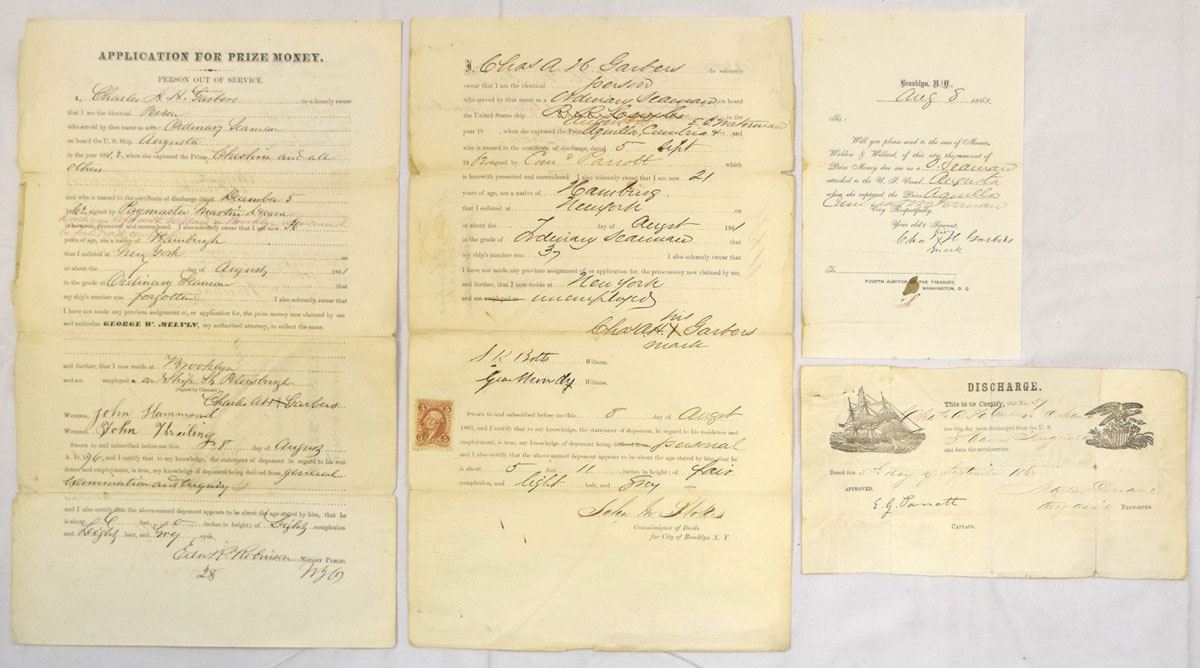 APPLICATION FOR PRIZE MONEY.
PERSON OUT OF SERVICE.
I, Charles A. H. Garbers do solemnly swear
that I am the identical Person
who served by that name as an Ordinary Seaman
on board the U. S. Ship Augusta
in the year 186 2, when she captured the Prize Cheshire and all
others
and who is named in the certificate of discharge dated December 5
1862 signed by Paymaster Martin Duane
presented and surrendered. I also solemnly swear that I am now
years of age, was a native of
that I enlisted at New York on
or about the 7 day of August 1861
in the grade of Ordinary Seaman that
my ship's number was forgotten I also solemnly swear that
I have not made any previous assignment of, or application for, the prize money now claimed by me
and authorize GEORGE W. MELVIN, my authorized attorney, to collect the same.
and further, that I now reside at Brooklyn
and am employed on Ship St Petersburgh
(Signed by Claimant)
Charles A H X Garbers
Witness, John Hammond
Witness, John
Sworn to and subscribed before me this 8 day of August
A. D. 186 , and I certify that to my knowledge, the statement of deponent in regard to his residence
and employment, is true, my knowledge of deponent being derived from general
examination and enquiry
And I also certify that the above-named deponent appears to be about the age stated by him, that he
is about 6 feet 0 inches in height; of Light complexion
and Light hair, and Grey eyes.
Robinson NOTARY PUBLIC.
28
I, Chas A. H Garbers do solemnly
swear that I am the identical person
who served by that name as a Ordinary Seaman on board
the United States ship in the
year 18 , when she captured the Prize Aquilla, Cumbria &
who is named in the certificate of discharge, dated 5 Sept
signed by Parrott which
is herewith presented and surrendered. I also solemnly swear that I am now 21
years of age, was a native of Hamburg
that I enlisted at New York on
or about the 7 day of Augst 1861
in the grade of Ordinary Seaman that
my ship's number was 37 I also solemnly swear that
I have not made any previous assignment of, or application for, the prize money now claimed by me,
and further, that I now reside at New York
and am employed as unemployed
his
Chas A H. X Garbers
mark
S. K. Botts Witness.
Geo Mundy Witness.
Sworn to and subscribed before me this 8 day of Augst
1863, and I certify that to my knowledge, the statement of deponent in regard to his residence and
employment, is true, my knowledge of deponent being derived from personal
And I also certify that the above-named deponent appears to be about the age stated by him; that he
is about 5 feet 11 inches in height; of fair
complexion, and light hair, and Grey eyes.
John M. Stokes
Commissioner of Deeds
for City of Brooklyn N. Y.
Brooklyn, N. Y.
Aug 8 1863.
Sir:
Will you please send to the care of Messrs.
Welden & Willard, of this city, the amount of
Prize Money due me as a O. Seaman
attached to the U. S. Vessel Augusta
when she captured the Prize Aquilla
Cumbria & Waterman
Very Respectfully,
Your obd't Servant,
his
Chas X H Garbers
mark
To
FOURTH AUDITOR OF THE TREASURY,
WASHINGTON, D. C.
DISCHARGE.
This is to Certify, that No. 37
has this day been discharged from the U. S.
Steamer Augusta
and from the naval service.
Dated this 5th day of September 1862
APPROVED,
Martin Duane
PAYMASTER.
E. G. Parrott
CAPTAIN.